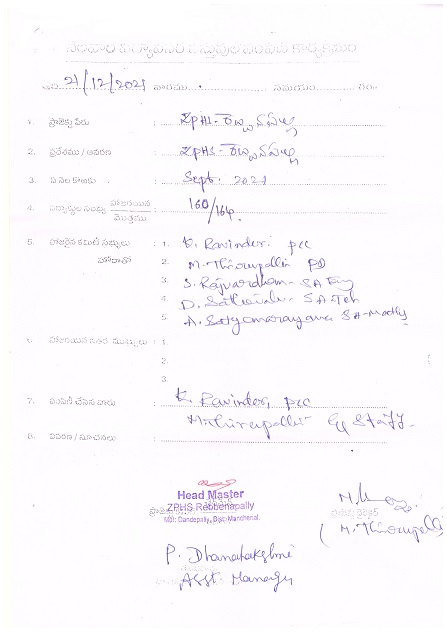 తేది 21/12/2021 వారము సమయం గం.
1. ప్రాజెక్టు పేరు ZPHS-రెబ్బనపల్లి
2. ప్రదేశము / ఆవరణ ZPHS-రెబ్బనపల్లి
3. ఏ నెల కొరకు Sept. 2021
4. విద్యార్థుల సంఖ్య హాజరయిన 160/164.
మొత్తము
5. హాజరైన కమిటీ సభ్యులు 1. K. Ravinder. pcc
హోదాతో 2. M. Thirupathi PD
3. S. Rajvardhan - SA Eng
4. D. Sathaiah - SA Tel
5. A. Satyanarayana SA-Maths
6. హాజరయిన ఇతర ముఖ్యులు : 1.
2.
3.
7. పంపిణీ చేసిన వారు K. Ravinder, pcc
M. Thirupathi & Staff.
8. వివరణ / సూచనలు
Head Master
ZPHS Rebbenapally
Mdl: Dandepally, Dist: Mancherial.
(M. Thirupathi)
P. Dhanalakshmi
Asst. Manager